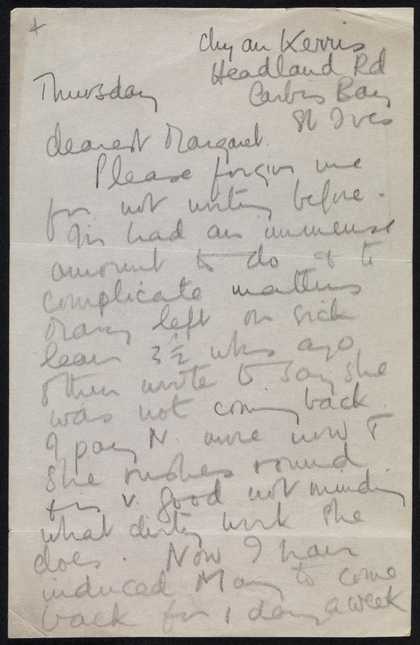 Chy an Kerris
Headland Rd
Carbis Bay
St Ives
Thursday
dearest Margaret.
Please forgive me
for not writing before.
I've had an immense
amount to do & to
complicate matters
Mary left on sick
leave 3½ wks ago
& then wrote to say she
was not coming back.
I pay N. more now &
she rushes round
& is v. good not minding
what dirty work she
does. Now I have
induced Mary to come
back for 1 day a week